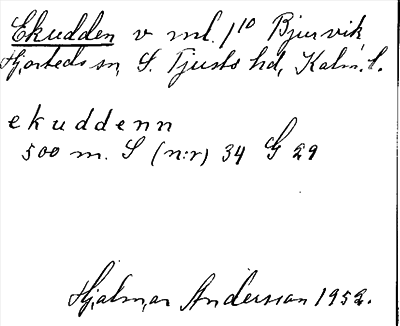 Ekudden v ml. 1¹⁰ Bjurvik
Hjorteds sn, S. Tjusts hd, Kalm. l.
ekuddenn
500 m. S (n:r) 34 G 29
Hjalmar Andersson 1952.